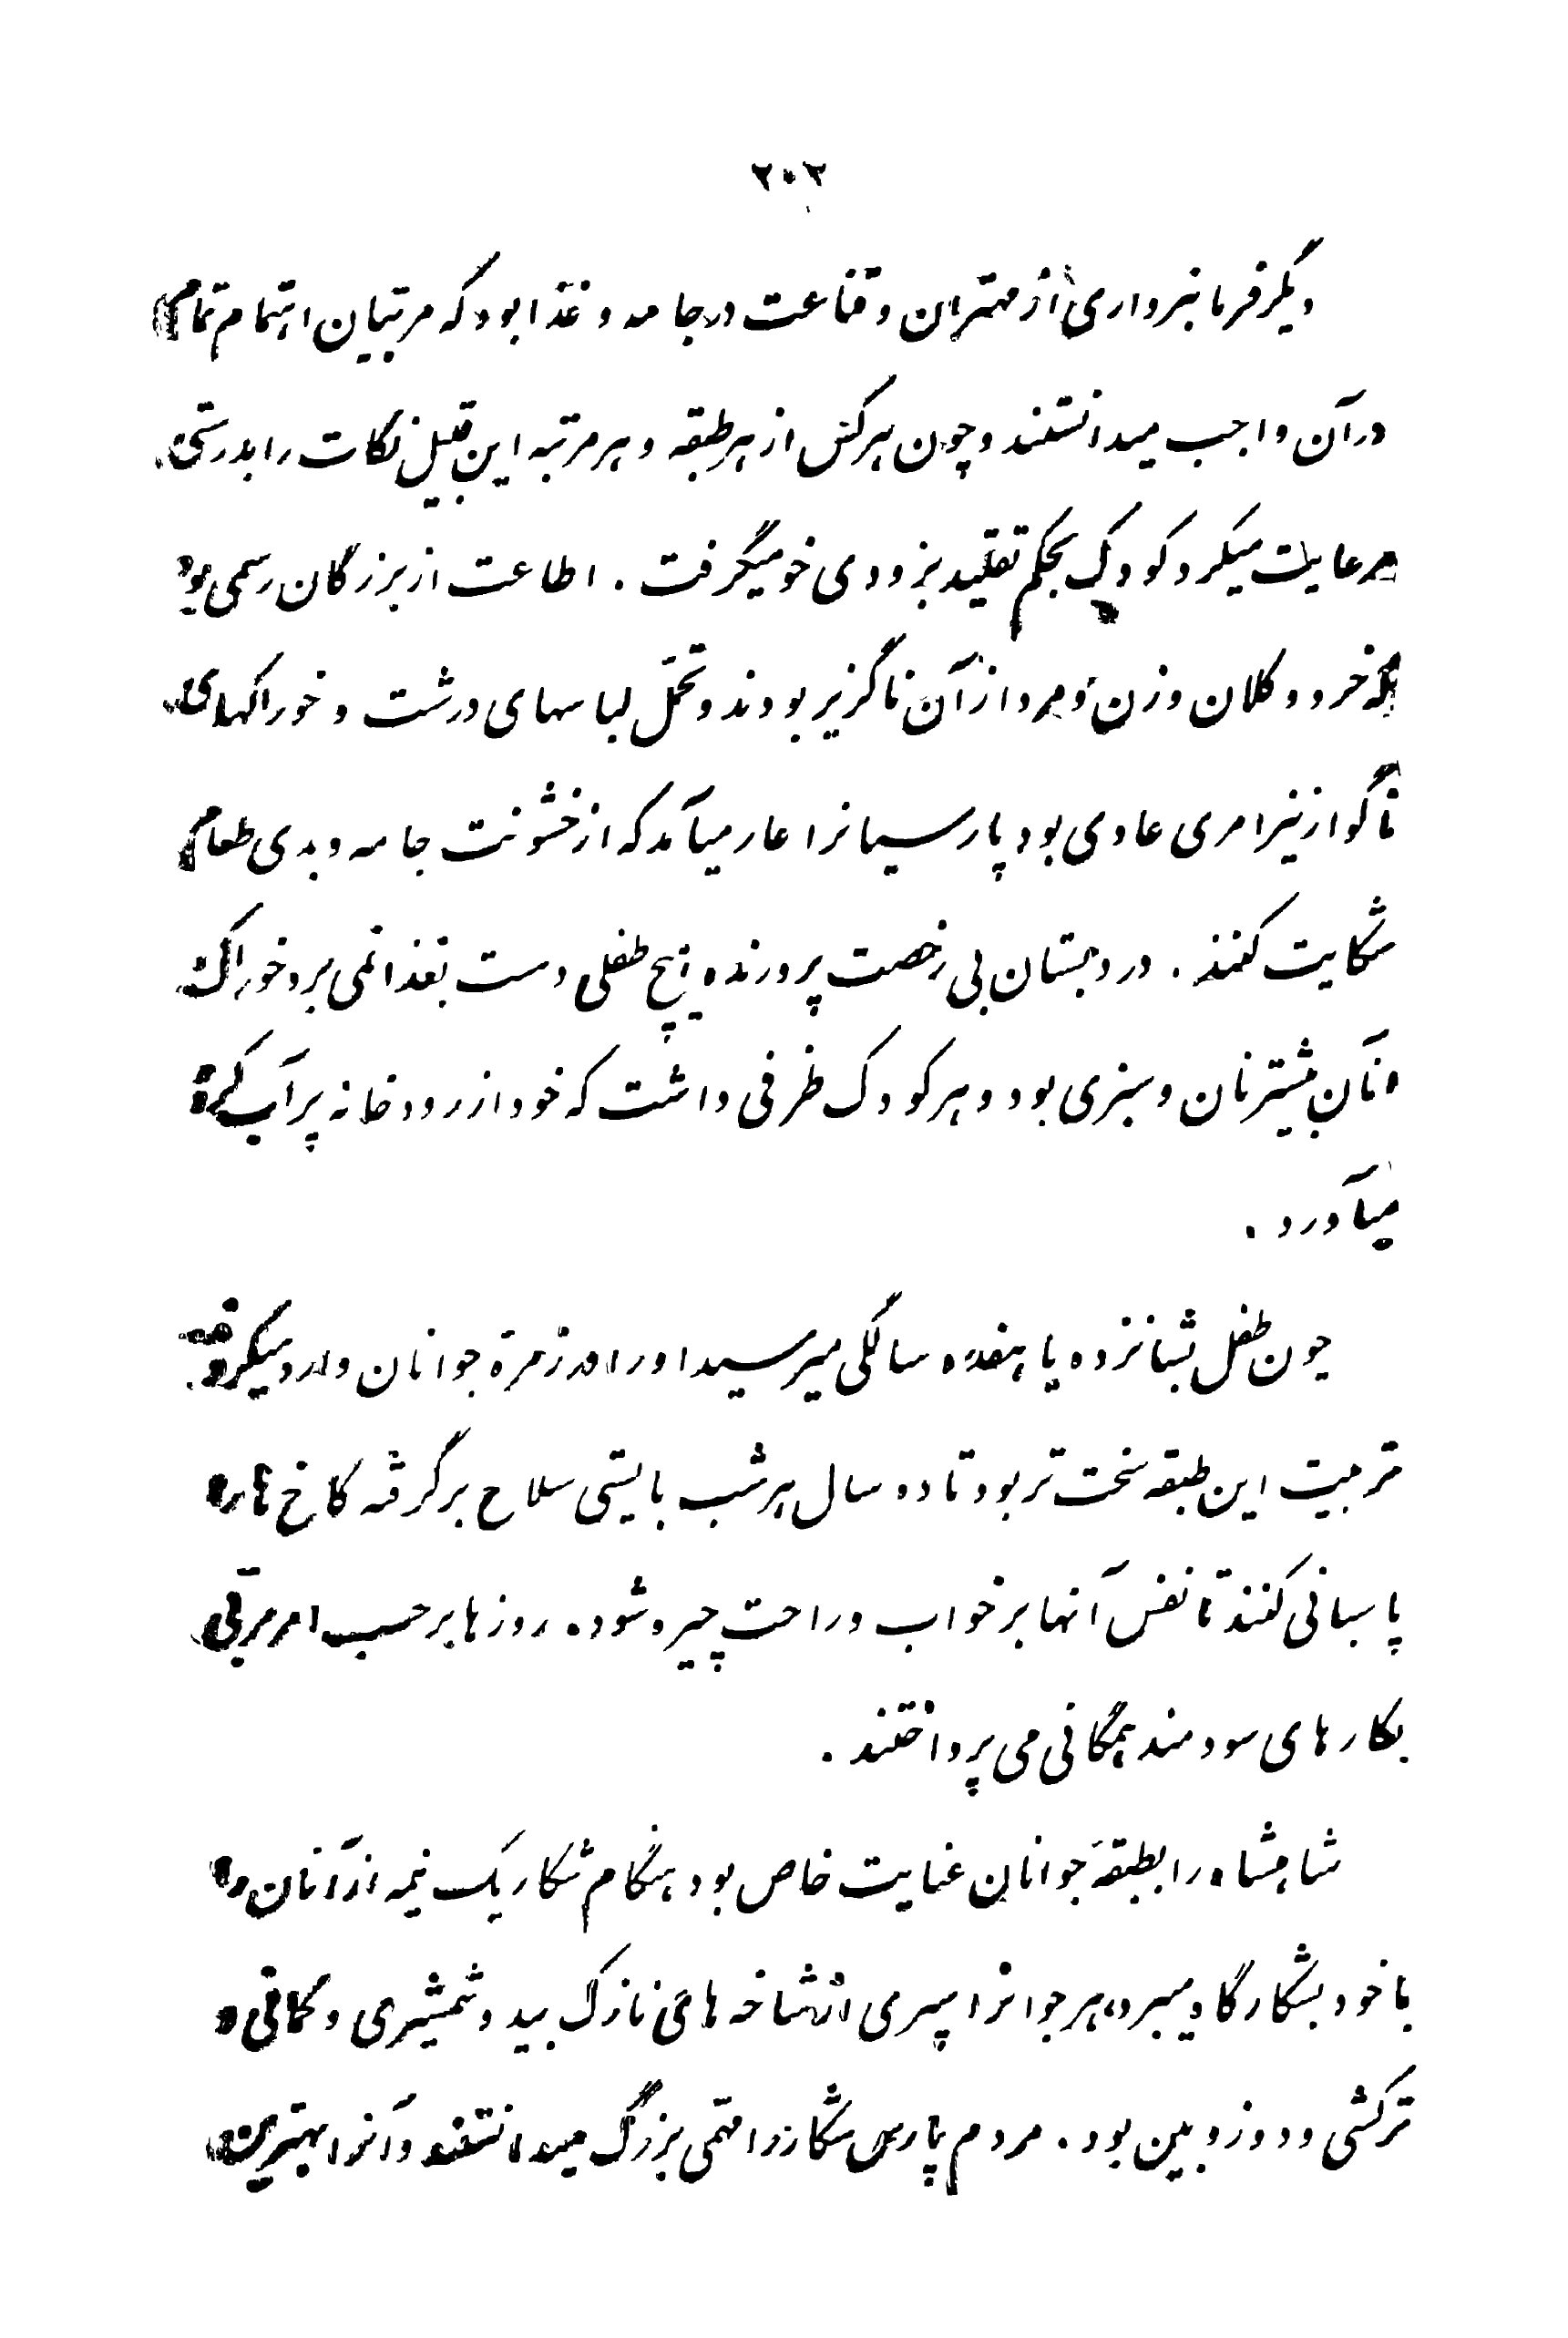 ۲۰۳
دیگر فرمانبرداری از مهتران و قناعت در جامه و غذا بود که مربیان اهتمام تمام
در آن واجب میدانستند و چون هرکس از هر طبقه و هر مرتبه این قبیل نکات را بدرستی
رعایت میکرد کودک بحکم تقلید بزودی خو میگرفت . اطاعت از بزرگان رسمی بود
که خرد و کلان و زن و مرد از آن ناگزیر بودند و تحمّل لباسهای درشت و خوراکهای
ناگوار نیز امری عادی بود پارسیانرا عار میآمد که از خشونت جامه و بدی طعام
شکایت کنند . در دبستان بی رخصت پرورنده هیچ طفلی دست بغذا نمی برد خوراک
آنان بیشتر نان و سبزی بود و هر کودک ظرفی داشت که خود از رودخانه پر آب کرده
میآورد .
چون طفل بشانزده یا هفده سالگی میرسید او را در زمرۀ جوانان وارد میکردند
تربیت این طبقه سخت تر بود تا ده سال هر شب بایستی سلاح برگرفته کاخ ها را
پاسبانی کنند تا نفس آنها بر خواب و راحت چیره شود . روزها بر حسب امر مربّی
بکارهای سودمند همگانی می پرداختند .
شاهنشاه را بطبقۀ جوانان عنایت خاص بود هنگام شکار یک نیمه از آنان را
با خود بشکارگاه میبرد، هر جوانرا سپری از شاخه های نازک بید و شمشیری و کمانی و
ترکشی و دو زوبین بود . مردم پارس شکار را مهمّی بزرگ میدانستند و آنرا بهترین